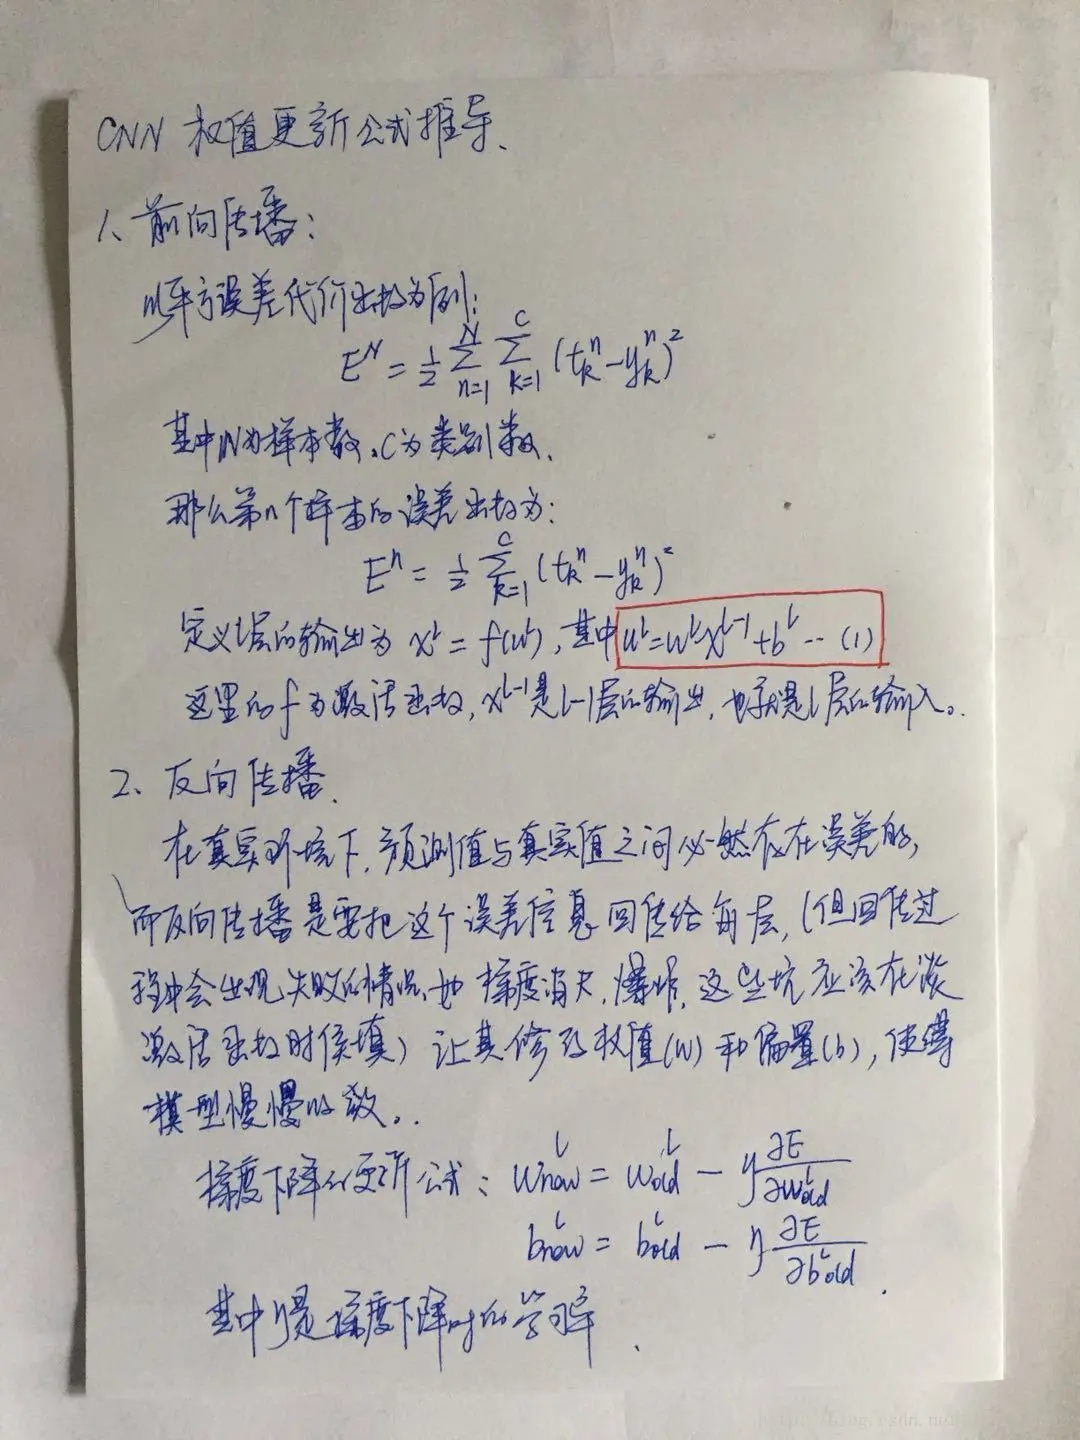 CNN 权值更新公式推导、
1、前向传播：
以平方误差代价函数为例：
E^N = 1/2 ∑_{n=1}^{N} ∑_{k=1}^{C} (t_k^n - y_k^n)^2
其中N为样本数，C为类别数、
那么第n个样本的误差函数为：
E^n = 1/2 ∑_{k=1}^{C} (t_k^n - y_k^n)^2
定义l层的输出为 x^l = f(u^l)，其中 u^l = w^l x^{l-1} + b^l -- (1)
这里的f为激活函数，x^{l-1}是l-1层的输出，也就是l层的输入。
2、反向传播、
在真实环境下，预测值与真实值之间必然存在误差的，
而反向传播是要把这个误差信息回传给每层，(但回传过
程中会出现失败的情况、如 梯度消失，爆炸，这些坑应该在谈
激活函数时候填) 让其修改权值(w)和偏置(b)，使得
模型慢慢收敛。.
梯度下降的更新公式：w_new^l = w_old^l - η ∂E/∂w_old^l
b_new^l = b_old^l - η ∂E/∂b_old^l .
其中η是梯度下降时的学习率 、